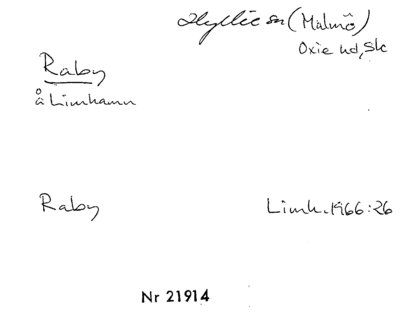 Hyllie sn (Malmö)
Oxie hd, Sk
Raby
å Limhamn
Raby Limh. 1966:26
Nr 21914